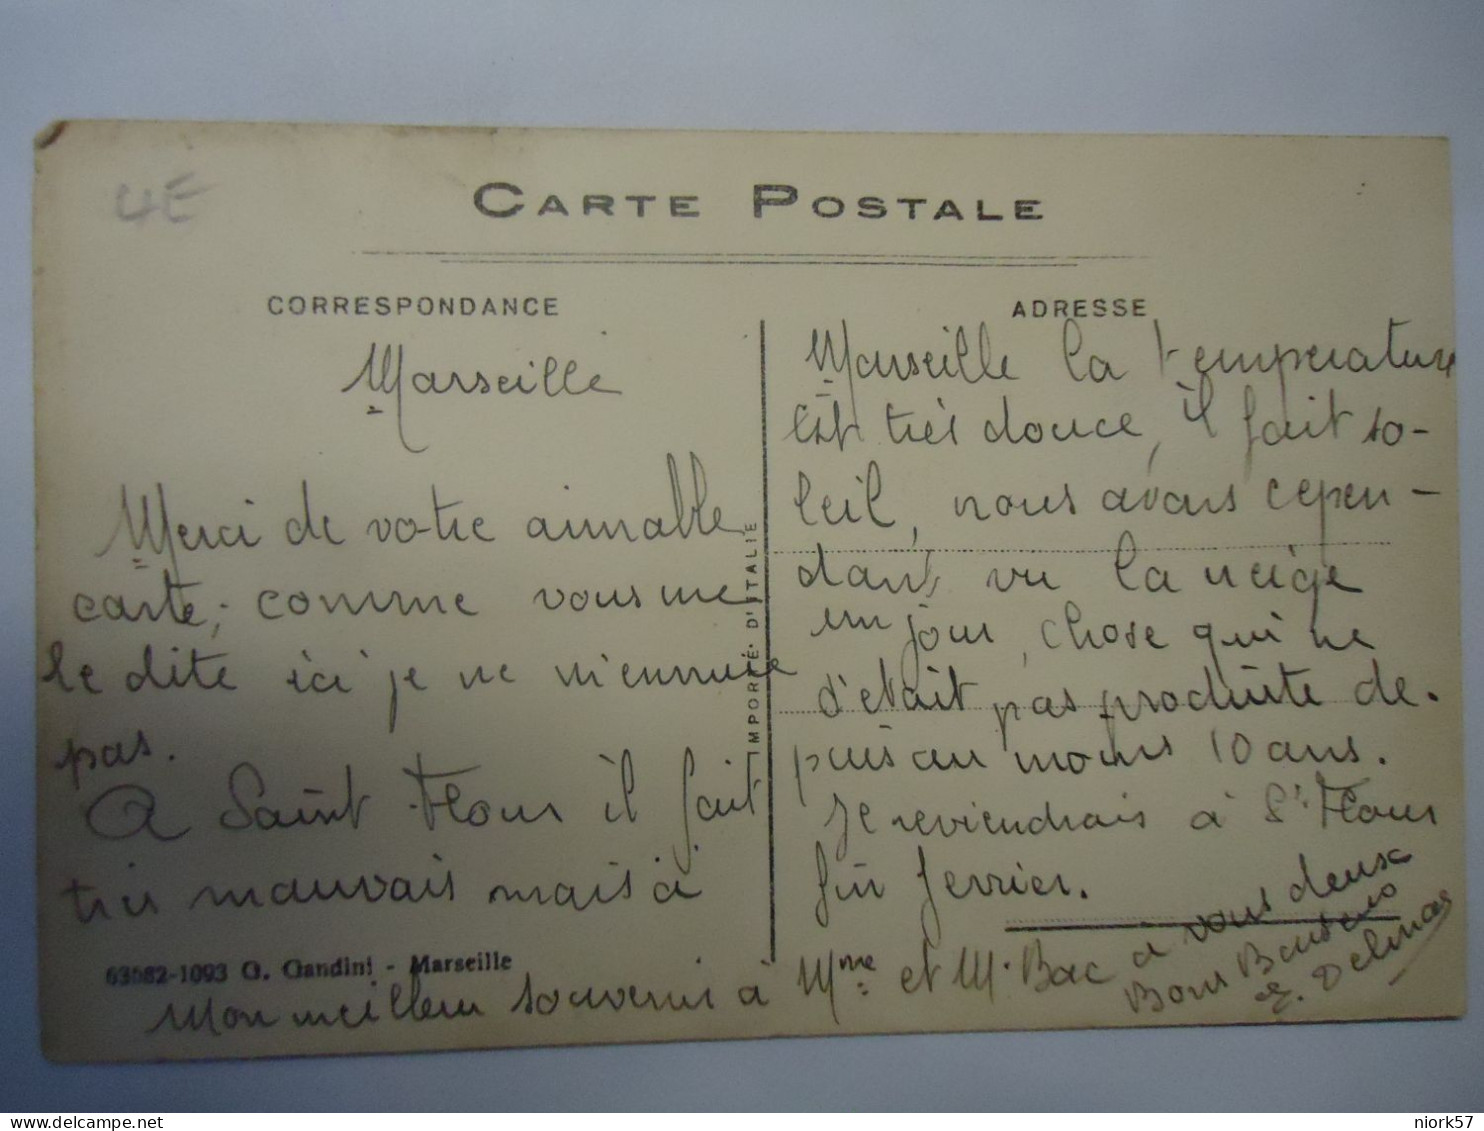 4E
CARTE POSTALE
CORRESPONDANCE
Marseille
Merci de votre aimable
carte, comme vous me
le dite ici je ne m'ennuie
pas.
A Saint Flour il fait
très mauvais mais à
63682-1093 G. Gandini - Marseille
IMPORTÉ D'ITALIE
ADRESSE
Marseille la température
est très douce, il fait so-
leil, nous avons cepen-
dant vu la neige
un jour, chose qui ne
s'était pas produite de-
puis au moins 10 ans.
Je reviendrais à St Flour
fin fevrier.
Mon meilleur souvenir à Mme et M. Bac
à vous deux
Bons Baisers
E. Delmas
niork57